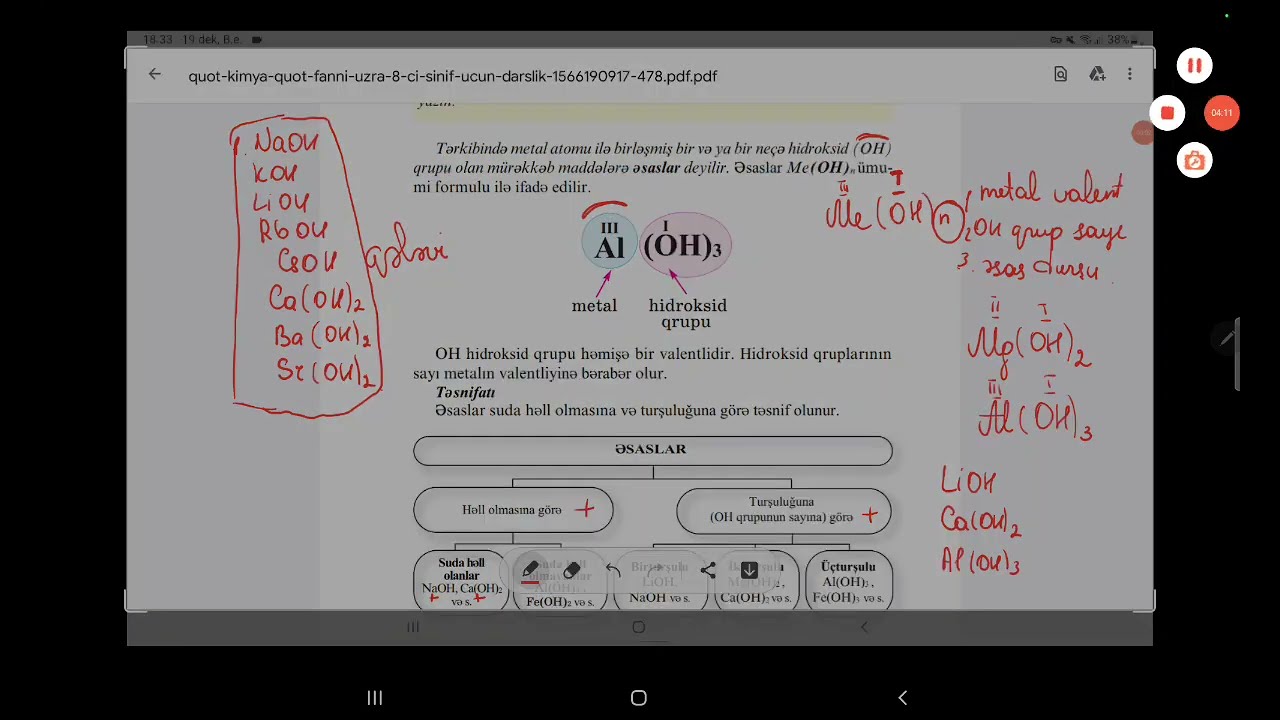 18.33 19 dek, B.e.
38%
quot-kimya-quot-fanni-uzra-8-ci-sinif-ucun-darslik-1566190917-478.pdf.pdf
04:11
yazın.
Tərkibində metal atomu ilə birləşmiş bir və ya bir neçə hidroksid (OH)
qrupu olan mürəkkəb maddələrə əsaslar deyilir. Əsaslar Me(OH)n ümu-
mi formulu ilə ifadə edilir.
III I
Al (OH)3
metal hidroksid
qrupu
OH hidroksid qrupu həmişə bir valentlidir. Hidroksid qruplarının
sayı metalın valentliyinə bərabər olur.
Təsnifatı
Əsaslar suda həll olmasına və turşuluğuna görə təsnif olunur.
ƏSASLAR
Həll olmasına görə +
Turşuluğuna
(OH qrupunun sayına) görə +
Suda həll
olanlar
NaOH, Ca(OH)2
və s.
Fe(OH)2 və s.
LiOH,
NaOH və s.
Ca(OH)2 və s.
Üçturşulu
Al(OH)3,
Fe(OH)3 və s.
NaOH
KOH
LiOH
RbOH
CsOH
Ca(OH)2
Ba(OH)2
Sr(OH)2
qələvi
III I
Me(OH)n
1 metal valent
2 OH qrup sayı
3. əsas
II I
Mg(OH)2
III I
Al(OH)3
LiOH
Ca(OH)2
Al(OH)3